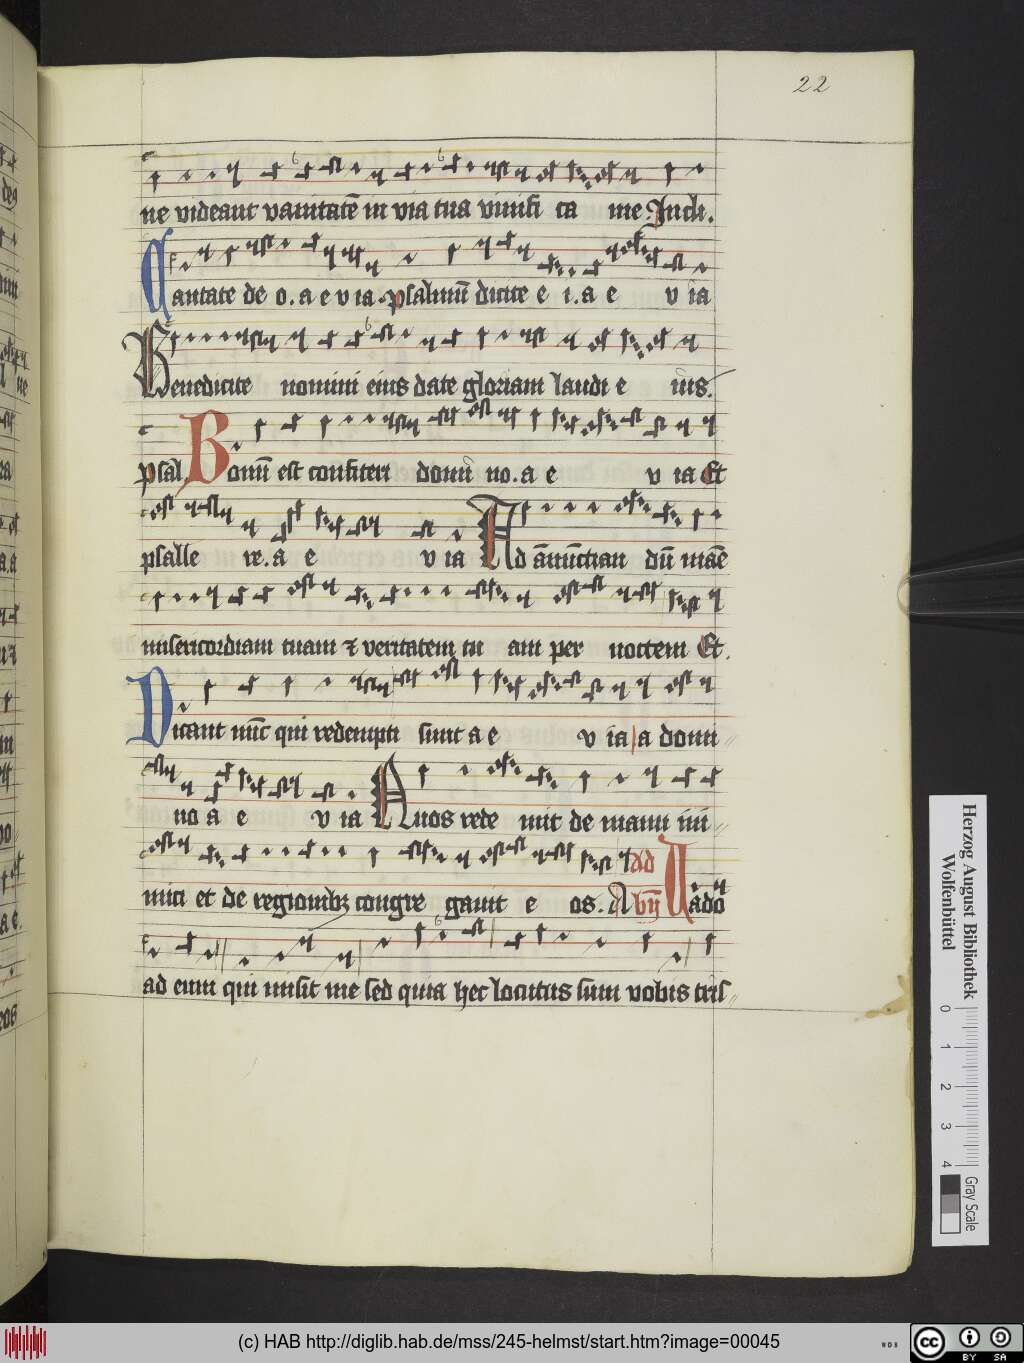 22
ne videant vanitatē in via tua vivifi ca me. Incli.
Cantate de o. a e v ia. psalmū dicite e i. a e v ia
Benedicite nomini eius date gloriam laudi e ius.
psal. Bonū est confiteri domī no. a e v ia Et
psalle re. a e v ia Ad ānūctian dū maē
misericordiam tuam ⁊ veritatem tu am per noctem Et.
Dicant nūc qui redempti sunt a e v ia a domi
no a e v ia Quos rede mit de manu ini
mici et de regionibȝ congre gavit e os. A
ad Vado
ad eum qui misit me sed quia hec locutus sūm vobis tris
Herzog August Bibliothek
Wolfenbüttel
0 1 2 3 4
Gray Scale
(c) HAB http://diglib.hab.de/mss/245-helmst/start.htm?image=00045
WDB
cc BY SA